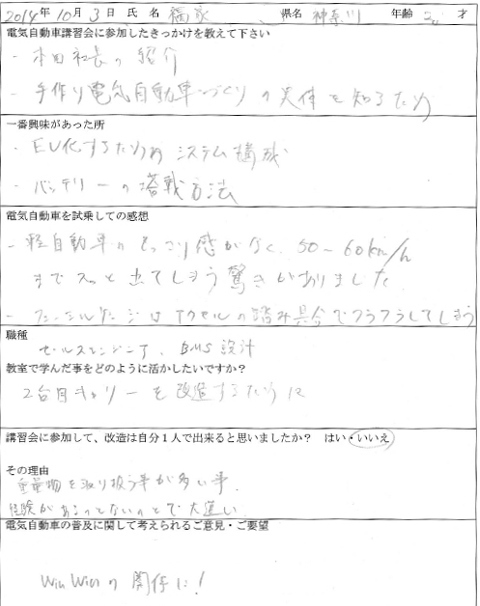 2014年10月3日 氏名 福家 県名 神奈川 年齢 才
電気自動車講習会に参加したきっかけを教えて下さい
・本田社長の紹介
・手作り電気自動車づくりの実体を知るため
一番興味があった所
・EV化するための システム構成
・バッテリーの搭載方法
電気自動車を試乗しての感想
・軽自動車の もっさり感がなく、50~60km/h
までスッと出てしまう驚きがありました
・フューエルゲージはアクセルの踏み具合でフラフラしてしまう
職種
セールスエンジニア、BMS設計
教室で学んだ事をどのように活かしたいですか?
2台目キャリーを改造するために
講習会に参加して、改造は自分1人で出来ると思いましたか? はい・いいえ
その理由
重量物を取り扱う事が多い事。
経験があるのとないのとで大違い
電気自動車の普及に関して考えられるご意見・ご要望
Win Winの関係に!